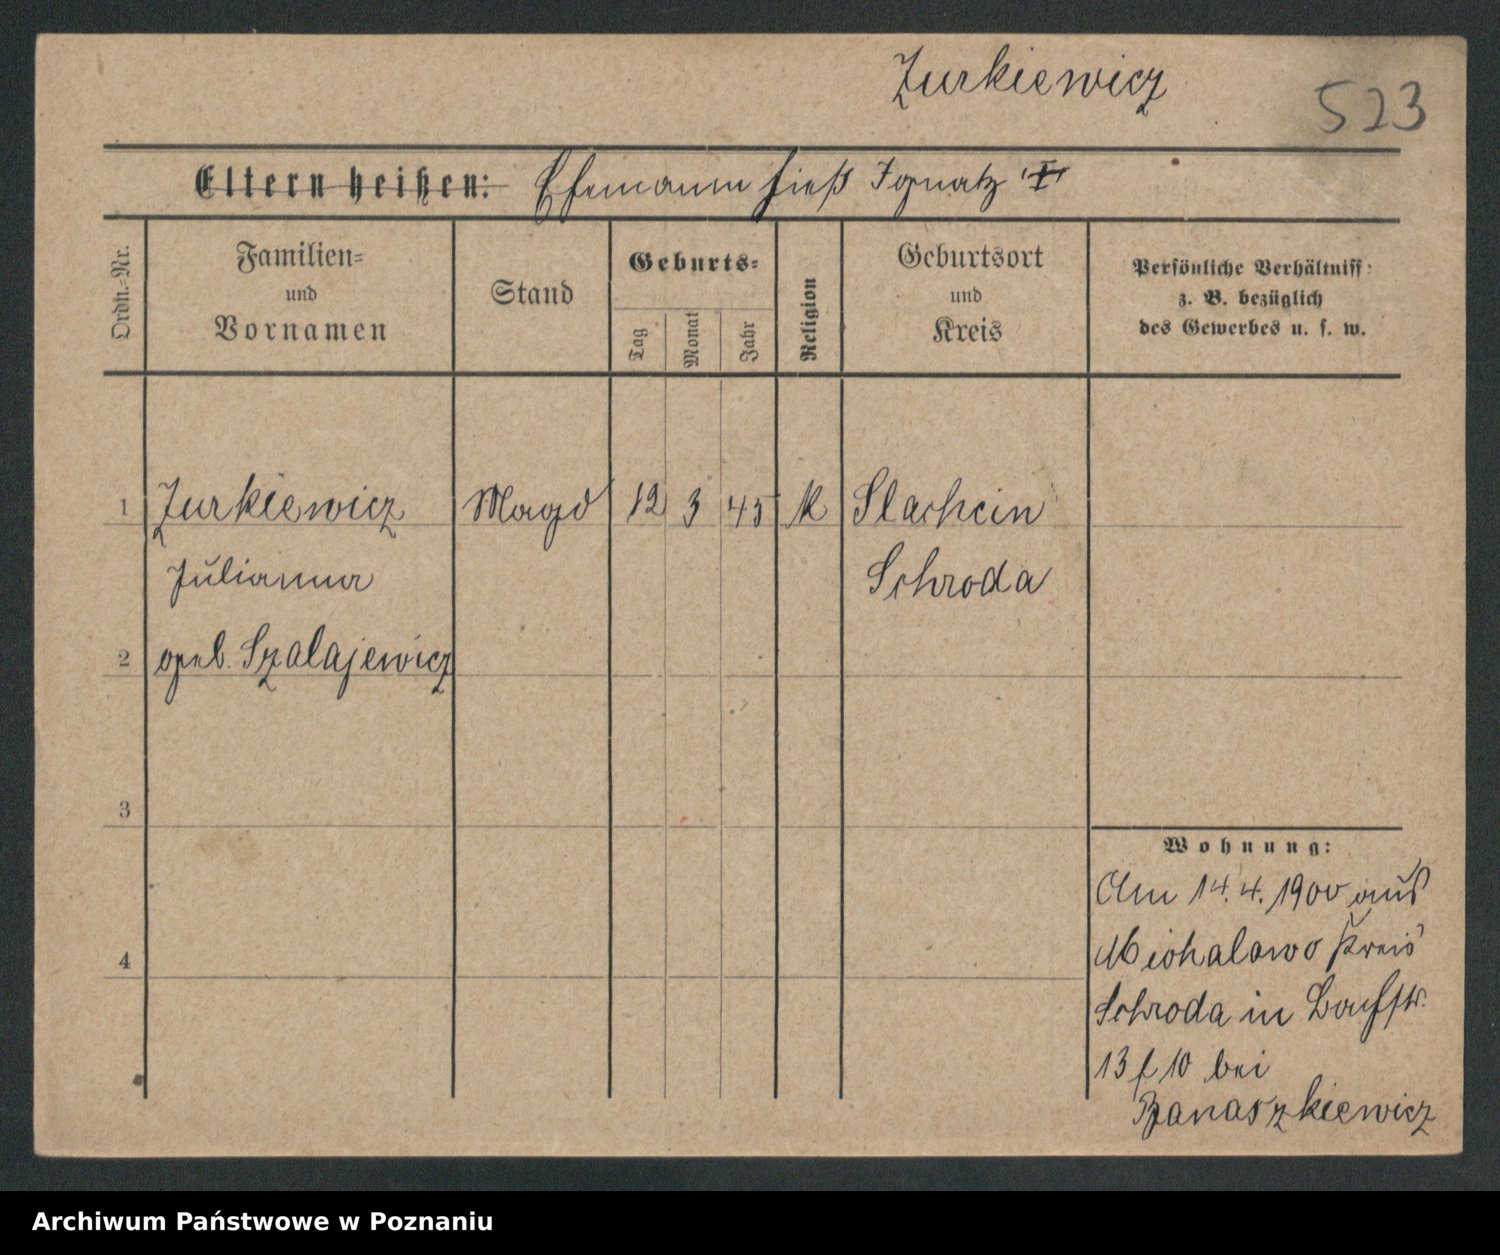 Zurkiewicz
523
Eltern heißen: Ehemann hieß Ignatz
Ordn.-Nr.
Familien=
und
Vornamen
Stand
Geburts=
Tag
Monat
Jahr
Religion
Geburtsort
und
Kreis
Persönliche Verhältniss:
z. B. bezüglich
des Gewerbes u. s. w.
1 Zurkiewicz Magd 12 3 45 K Slachcin
Julianna Schroda
2 geb. Szalajewicz
3
Wohnung:
Am 14.4.1900 aus
4
Michalowo Kreis
Schroda in
13 10 bei
Banaszkiewicz
Archiwum Państwowe w Poznaniu